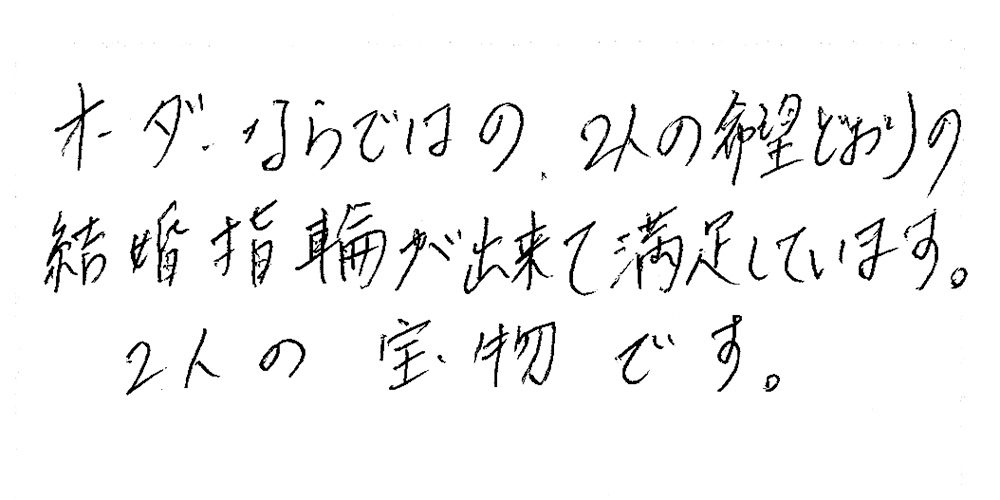 オーダーならではの、2人の希望どおりの
結婚指輪が出来て満足しています。
2人の宝物です。